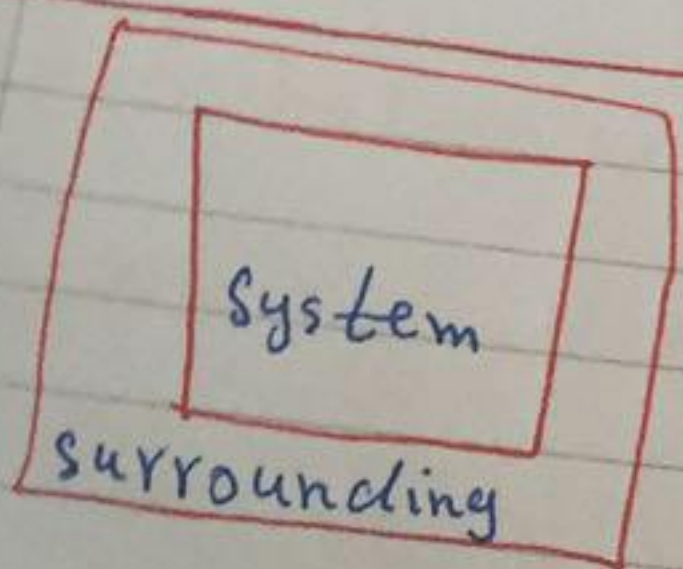 System
surrounding